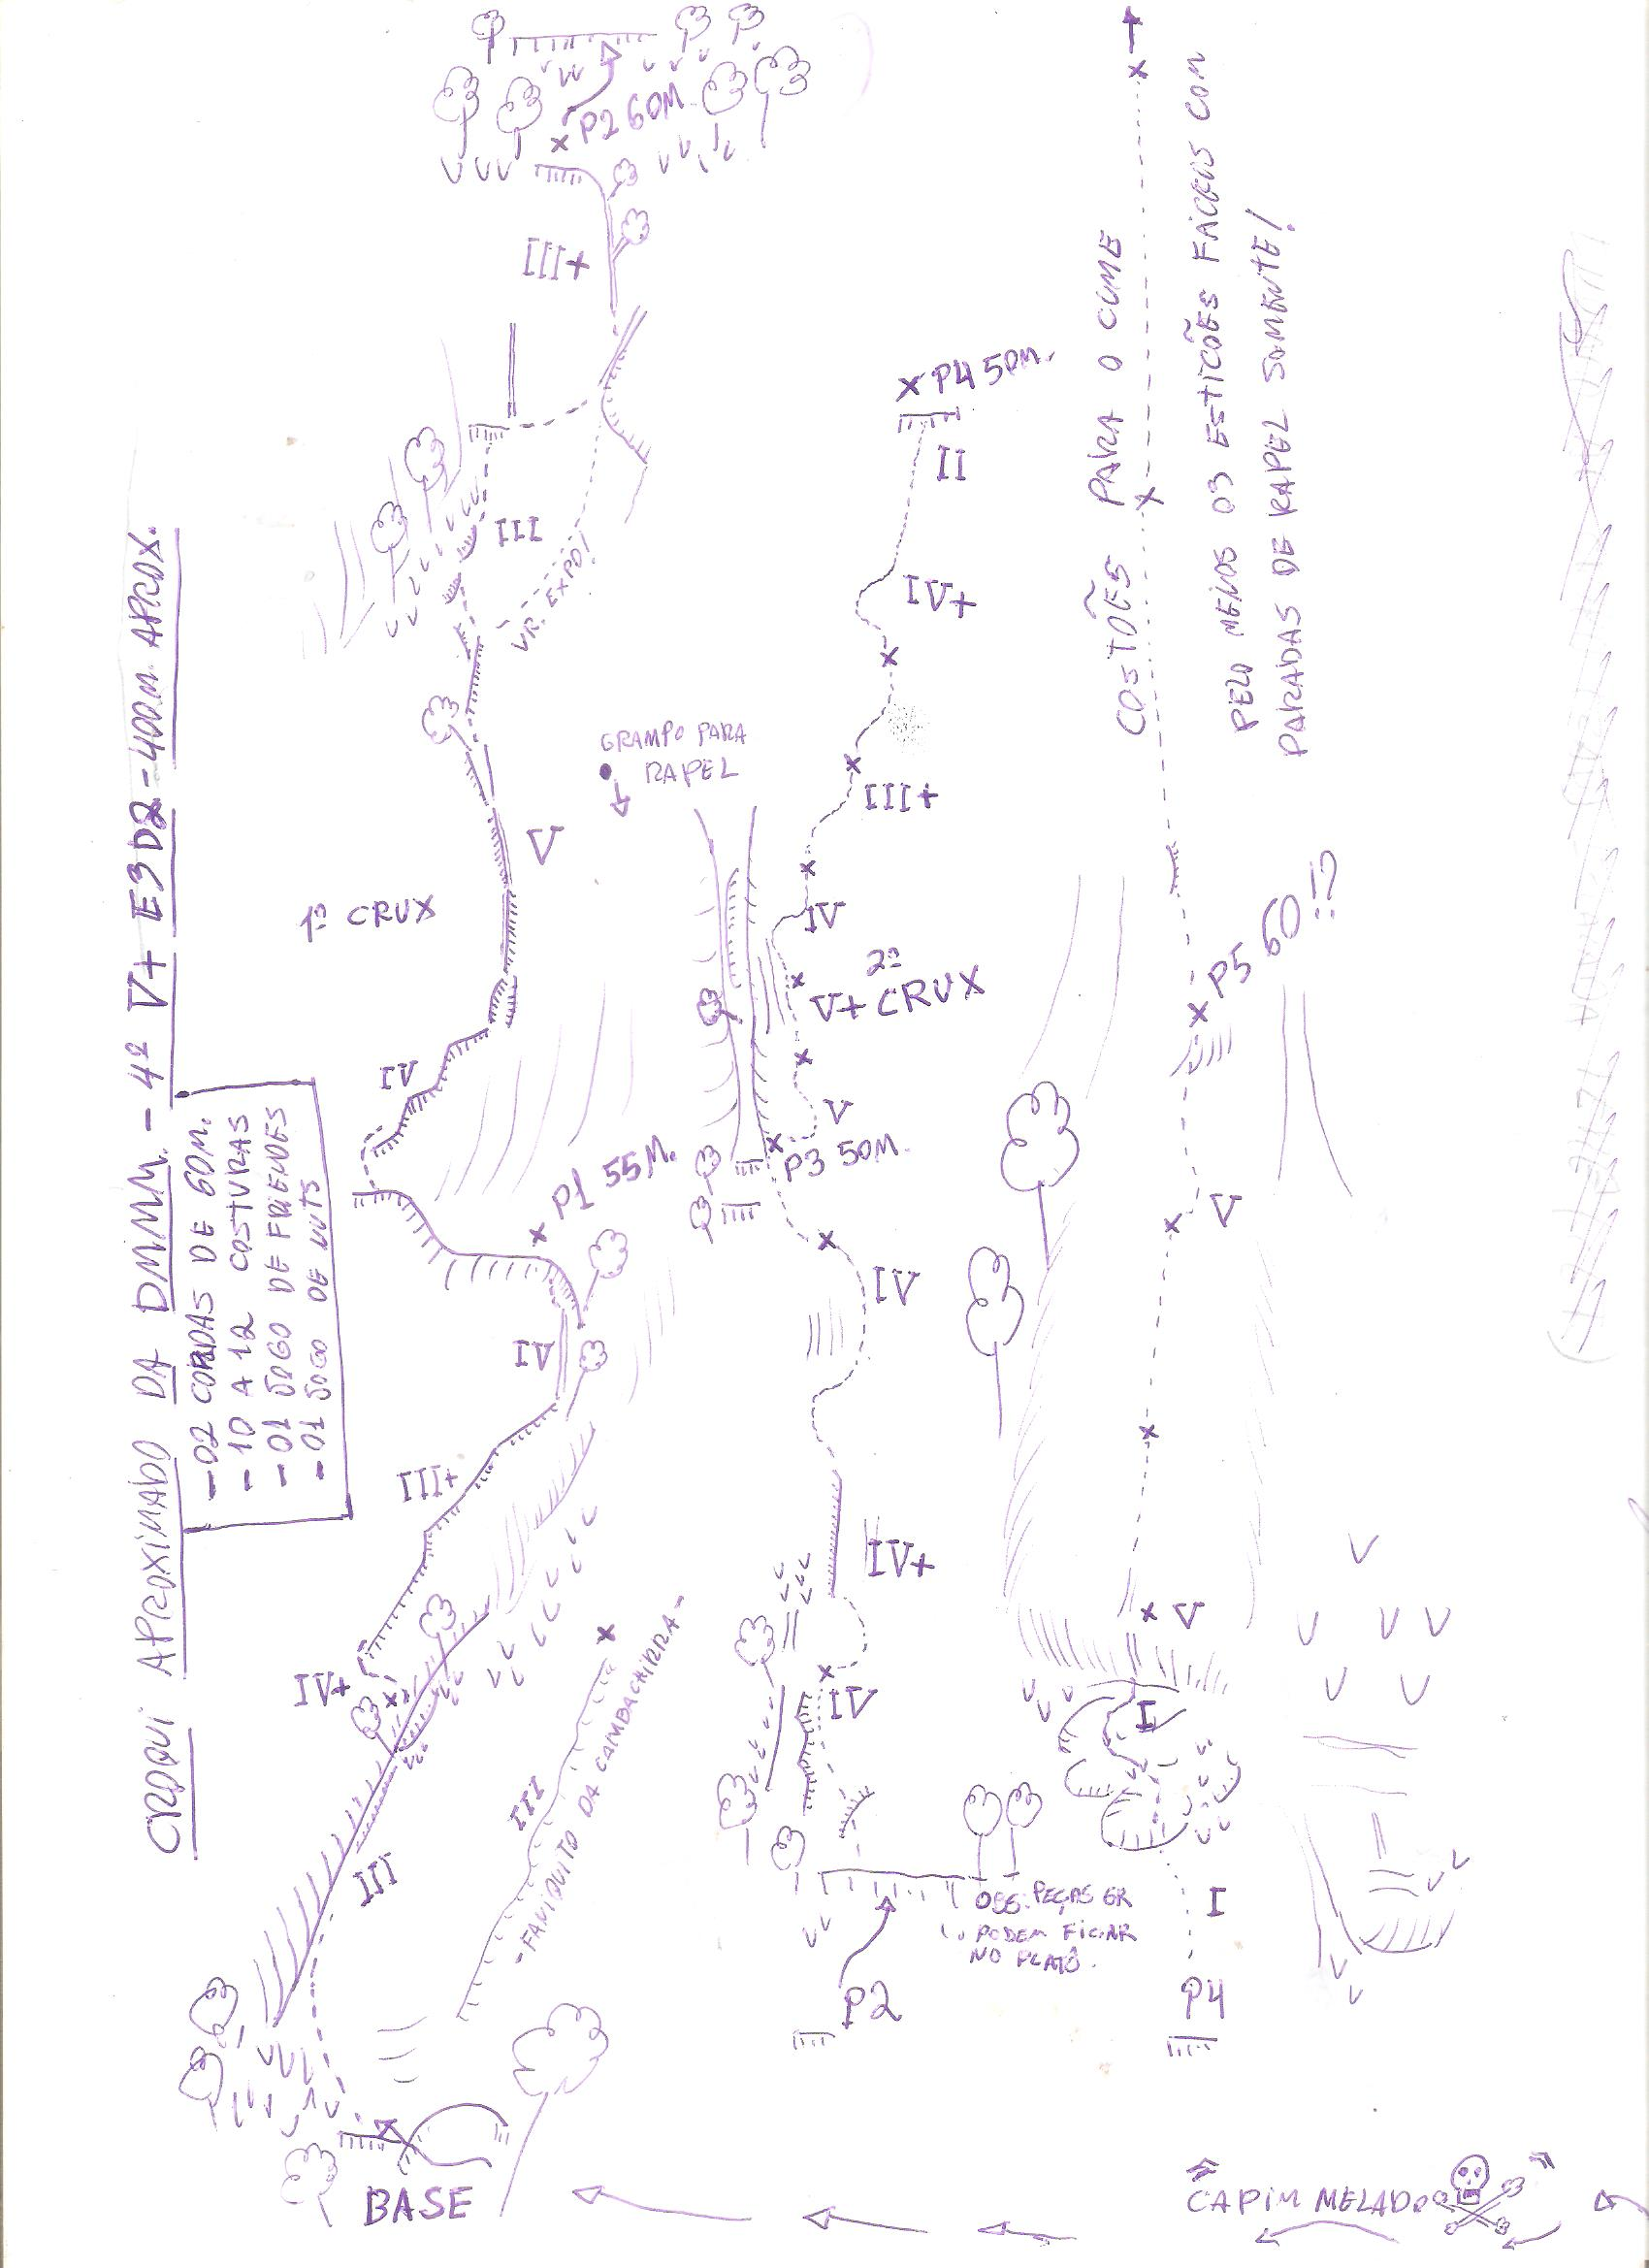 CROQUI APROXIMADO DA DMM. - 4º V+ E3 D2 - 400M APROX.
- 02 CORDAS DE 60M.
- 10 A 12 COSTURAS
- 01 JOGO DE FRIENDES
- 01 JOGO DE NUTS
P2 60M
III+
III
VR. EXPO!
V
1º CRUX
IV
P1 55M.
IV
III+
IV+
III
III
- FANIQUITO DA CAMBACHIRRA -
BASE
GRAMPO PARA
RAPEL
X P4 50M.
II
IV+
III+
IV
2º
V+ CRUX
V
P3 50M.
IV
IV+
IV
OBS: PEÇAS GR
PODEM FICAR
NO PLATÔ.
P2
COSTÕES PARA O CUME
PELO MENOS 03 ESTICÕES FÁCEIS COM
PARADAS DE RAPEL SOMENTE!
P5 60!?
V
V
I
I
P4
"CAPIM MELADO"